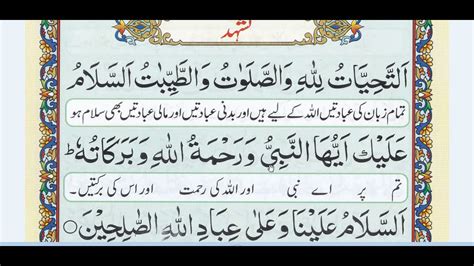 تشہد
اَلتَّحِيَّاتُ لِلّٰهِ وَالصَّلَوٰتُ وَالطَّيِّبٰتُ اَلسَّلَامُ
تمام زبان کی عبادتیں اللہ کے لیے ہیں اور بدنی عبادتیں اور مالی عبادتیں بھی سلام ہو
عَلَيْكَ اَيُّهَا النَّبِيُّ وَرَحْمَةُ اللهِ وَبَرَكَاتُهٗ ط
تم پر اے نبی اور اللہ کی رحمت اور اس کی برکتیں۔
اَلسَّلَامُ عَلَيْنَا وَعَلٰى عِبَادِ اللهِ الصّٰلِحِيْنَ ○